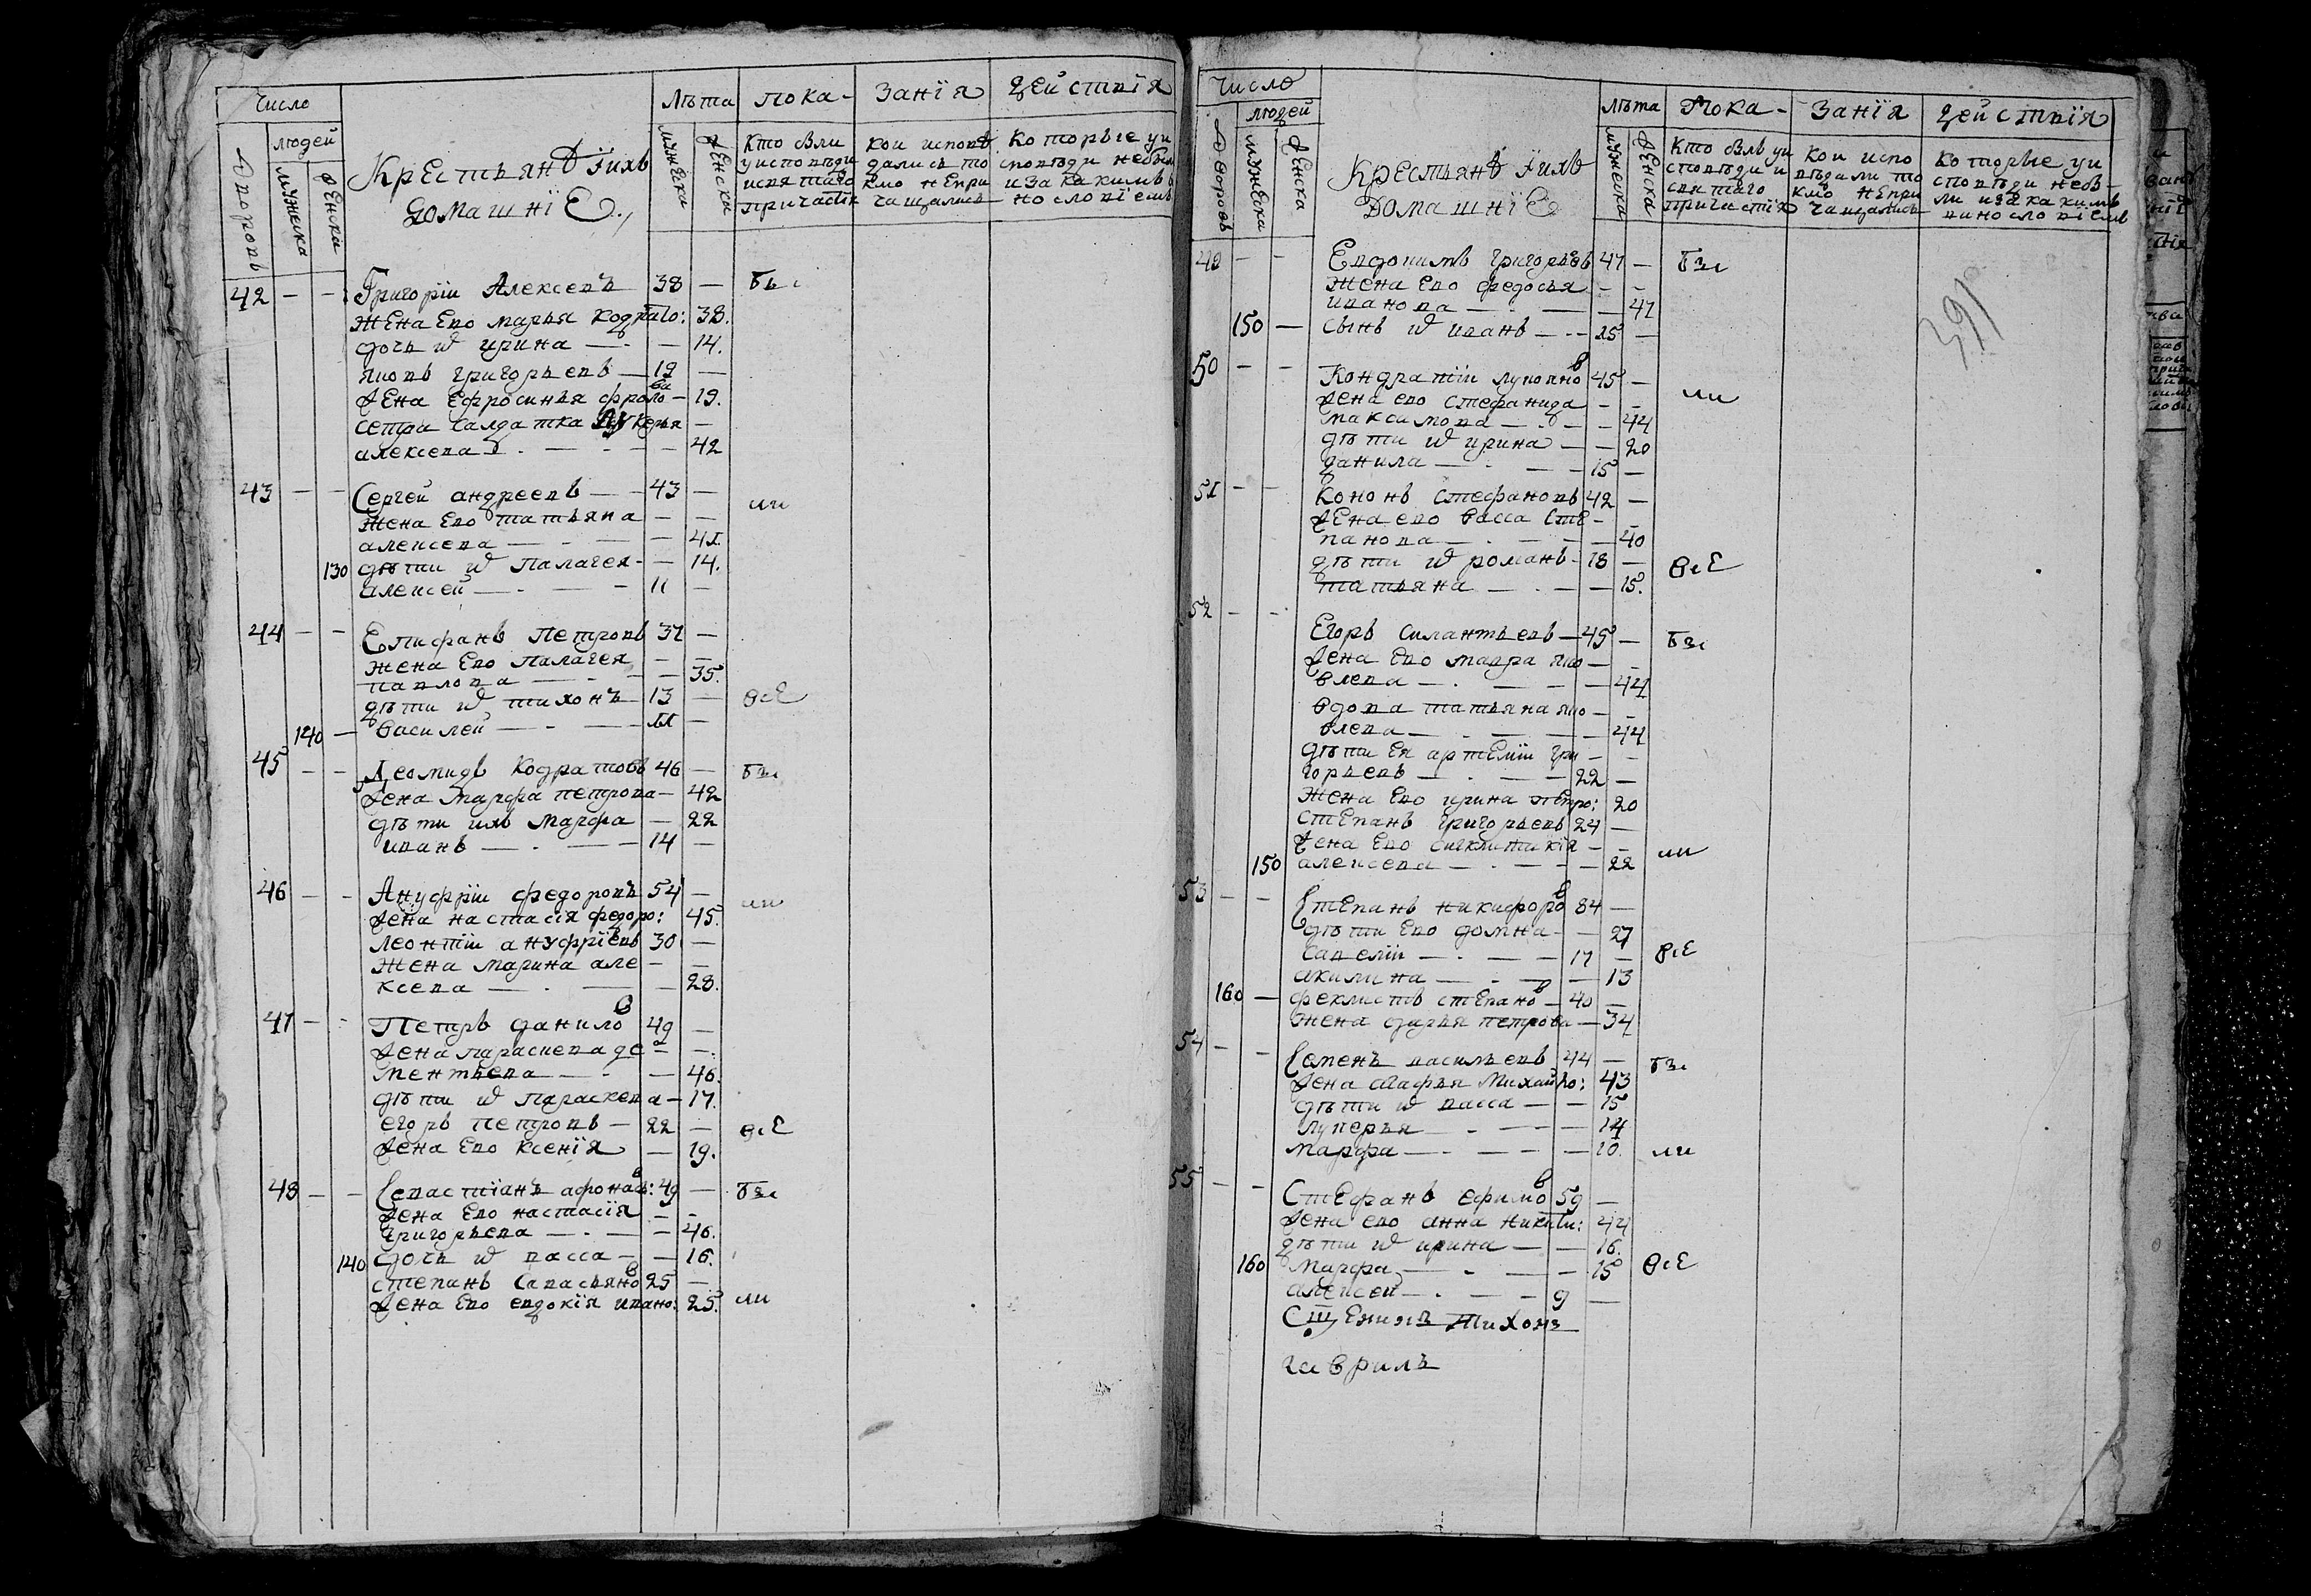 Число
людей
Дворовъ
мужеска
женска
Крестьянѣ ихъ
домашнїе
Лѣта
мужеска
женска
пока-
занїя
действїя
Кто были
у исповеди
и святаго
причастїя
Кои исповѣ
дались то
кмо непри
чащались
Которые у и
споведи небы
и за какимъ
42 — — Григорїи Алексевъ 38 — Бы
жена ево марья кодрато: 38.
дочь ѿ ирина — — 14.
яковъ григорьевъ — 19 —
жена ефросинья фролова — 19.
сестра салдатка лукерья —
алексева — — 42
43 — — Сергей андреевъ — 43 — ли
жена ево татьяна — —
алексева — — 41.
130 дѣти ѿ палагея — 14.
алексей — 11 —
44 — — Епифанъ петровъ 37 —
жена ево палагея — —
павлова — — 35.
дѣти ѿ тихонъ 13 — всЕ
140 — василей — 11 —
45 — — Леонидъ кодратовъ 46 — Бы
жена марфа петрова — 42
дѣти ихъ марфа — 22
иванъ — 14 —
46 — — Ануфрїи федоровъ 54 — ли
жена настасїя федоро: 45.
леонтїи ануфрїевъ 30 —
жена марина але — —
ксева — — 28.
47 — — Петръ данилов 49 —
жена параскева де — —
ментьева — — 46.
дѣти ѿ параскева — 17.
егоръ петровъ — 22 — всЕ
жена ево ксенїя — 19.
48 — — Севастїанъ афонас: 49 — Бы
жена ево настасїя — —
григорьева — — 46.
140 дочь ѿ васса — — 16.
степанъ савасьянов 25 —
жена ево евдокїя ивано: 25. ли
Число
людей
Дворовъ
мужеска
женска
Крестьянѣ ихъ
домашнїе
лѣта
мужеска
женска
Пока-
занїя
действїя
Кто былъ у и
споведи и
святаго
причастїя
Кои испо
вѣдали то
кмо непри
чащались
Которые у и
споведи небы-
ли и за какимъ
винословїемъ
391
49 — — Евдокимъ григорьевъ 47 — Бы
жена ево федосья — —
иванова — — 47
150 — сынъ ѿ иванъ — 25 —
50 — — Кондратїи лупоянов 45 — ли
жена ево стефанида — —
максимова — — 44
дѣти ѿ ирина — — 20
данила — 15 —
51 — — Кононъ стефановъ 42 —
жена ево васса сте — —
панова — — 40
дѣти ѿ романъ — 18 — всЕ
татьяна — — 15.
52 — — Егоръ силантьевъ — 45 — Бы
жена ево мавра яко — —
влева — — 44
вдова татьяна яко — —
влева — — 44
дѣти ея артемїи гри — —
горьевъ — 22 —
жена ево ирина петро: 20
степанъ григорьевъ 24 —
жена ево сигклитикїя — — ли
150 алексева — — 22
53 — — Степанъ никифоров 84 —
дѣти ево домна — — 27
савелїи — 17 — всЕ
акилина — — 13
160 — феклистъ степанов — 40 —
жена дарья петрова — 34
54 — — Семенъ васильевъ 44 — Бы
жена марья михайло: 43
дѣти ѿ васса — — 15
лукерья — — 14
марфа — — 10. ли
55 — — Стефанъ ефимов 59 —
жена ево анна никити: 44
дѣти ѿ ирина — — 16.
160 марфа — — 15 всЕ
алексеи — 9 —
Сщенникъ Тихонъ
гаврилъ